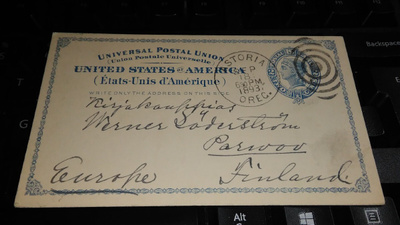 UNIVERSAL POSTAL UNION
(Union Postale Universelle)
UNITED STATES OF AMERICA
(États-Unis d'Amérique)
WRITE ONLY THE ADDRESS ON THIS SIDE
ASTORIA
SEP
6 PM
1893
OREG.
Kirjakauppias
Werner Söderström
Parwoo
Europe Finland.
Alt